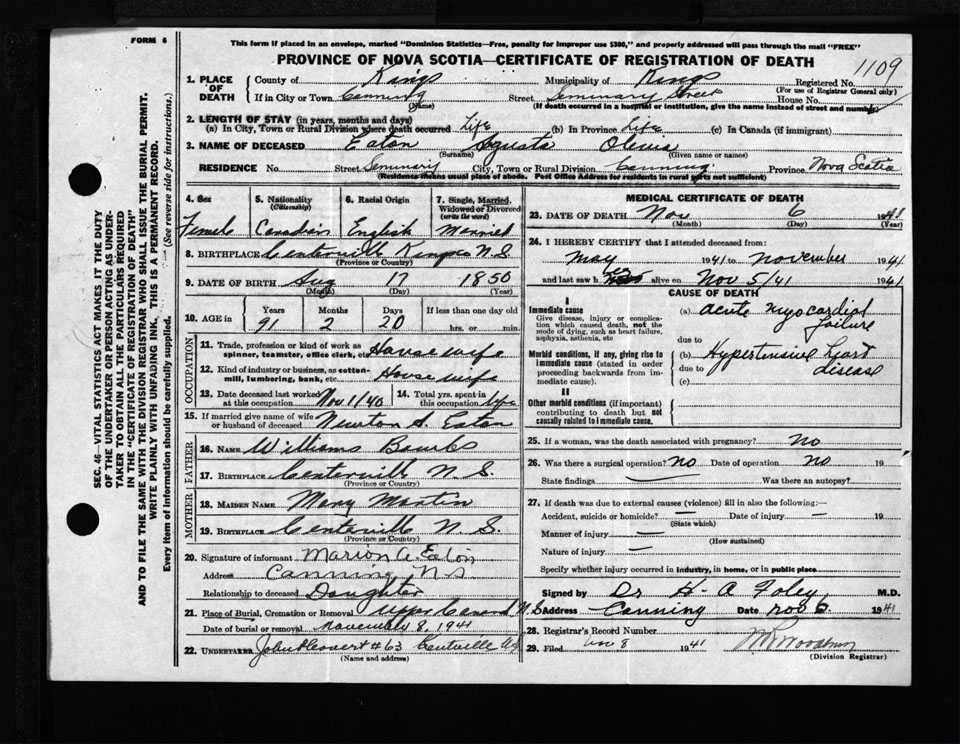 FORM 6
This form if placed in an envelope, marked "Dominion Statistics—Free, penalty for improper use $300," and properly addressed will pass through the mail "FREE"
PROVINCE OF NOVA SCOTIA—CERTIFICATE OF REGISTRATION OF DEATH
1109
1. PLACE OF DEATH County of Kings Municipality of Kings Registered No.
(For use of Registrar General only)
If in City or Town Canning Street Seminary Street House No.
(Name) (If death occurred in a hospital or institution, give the name instead of street and number)
2. LENGTH OF STAY (in years, months and days)
(a) In City, Town or Rural Division where death occurred Life (b) In Province Life (c) In Canada (if immigrant)
3. NAME OF DECEASED Eaton Agusta
(Surname) (Given name or names)
RESIDENCE No. Street Seminary City, Town or Rural Division Canning Province Nova Scotia
(Residence means usual place of abode. Post Office Address for residents in rural parts not sufficient)
SEC. 46—VITAL STATISTICS ACT MAKES IT THE DUTY
OF THE UNDERTAKER OR PERSON ACTING AS UNDER-
TAKER TO OBTAIN ALL THE PARTICULARS REQUIRED
IN THE "CERTIFICATE OF REGISTRATION OF DEATH"
AND TO FILE THE SAME WITH THE DIVISION REGISTRAR WHO SHALL ISSUE THE BURIAL PERMIT.
WRITE PLAINLY WITH UNFADING INK. THIS IS A PERMANENT RECORD.
Every item of information should be carefully supplied. (See reverse side for instructions.)
4. Sex 5. Nationality (Citizenship) 6. Racial Origin 7. Single, Married, Widowed or Divorced (write the word)
Female Canadian English Married
8. BIRTHPLACE Centerville Kings N.S.
(Province or Country)
9. DATE OF BIRTH Aug 17 1850
(Month) (Day) (Year)
10. AGE in Years Months Days If less than one day old
91 2 20 hrs. or min.
OCCUPATION
11. Trade, profession or kind of work as spinner, teamster, office clerk, etc. House wife
12. Kind of industry or business, as cotton-mill, lumbering, bank, etc. House wife
13. Date deceased last worked at this occupation Nov 1/40 14. Total yrs. spent in this occupation Life
15. If married give name of wife or husband of deceased Newton S. Eaton
FATHER
16. NAME Williams
17. BIRTHPLACE Centerville N.S.
(Province or Country)
MOTHER
18. MAIDEN NAME Mary Martin
19. BIRTHPLACE Centerville N.S.
(Province or Country)
20. Signature of informant Marion A. Eaton
Address Canning N.S
Relationship to deceased Daughter
21. Place of Burial, Cremation or Removal Upper Canard N.S
Date of burial or removal November 8, 1941
22. UNDERTAKER #63
(Name and address)
MEDICAL CERTIFICATE OF DEATH
23. DATE OF DEATH Nov 6 1941
(Month) (Day) (Year)
24. I HEREBY CERTIFY that I attended deceased from:
May 1941 to November 1941
and last saw her alive on Nov 5/41 1941
CAUSE OF DEATH
I
Immediate cause
Give disease, injury or complication which caused death, not the mode of dying, such as heart failure, asphyxia, asthenia, etc
(a) Acute myocardial failure
due to
Morbid conditions, if any, giving rise to immediate cause (stated in order proceeding backwards from immediate cause).
(b) Hypertensive heart disease
due to
(c)
II
Other morbid conditions (if important) contributing to death but not causally related to immediate cause.
25. If a woman, was the death associated with pregnancy? No
26. Was there a surgical operation? No Date of operation No 19
State findings — Was there an autopsy?
27. If death was due to external causes (violence) fill in also the following:—
Accident, suicide or homicide? — Date of injury — 19
(State which)
Manner of injury —
(How sustained)
Nature of injury —
Specify whether injury occurred in industry, in home, or in public place
Signed by Dr H. A Foley M.D.
Address Canning Date Nov 6. 1941
28. Registrar's Record Number
29. Filed Nov 8 1941
(Division Registrar)